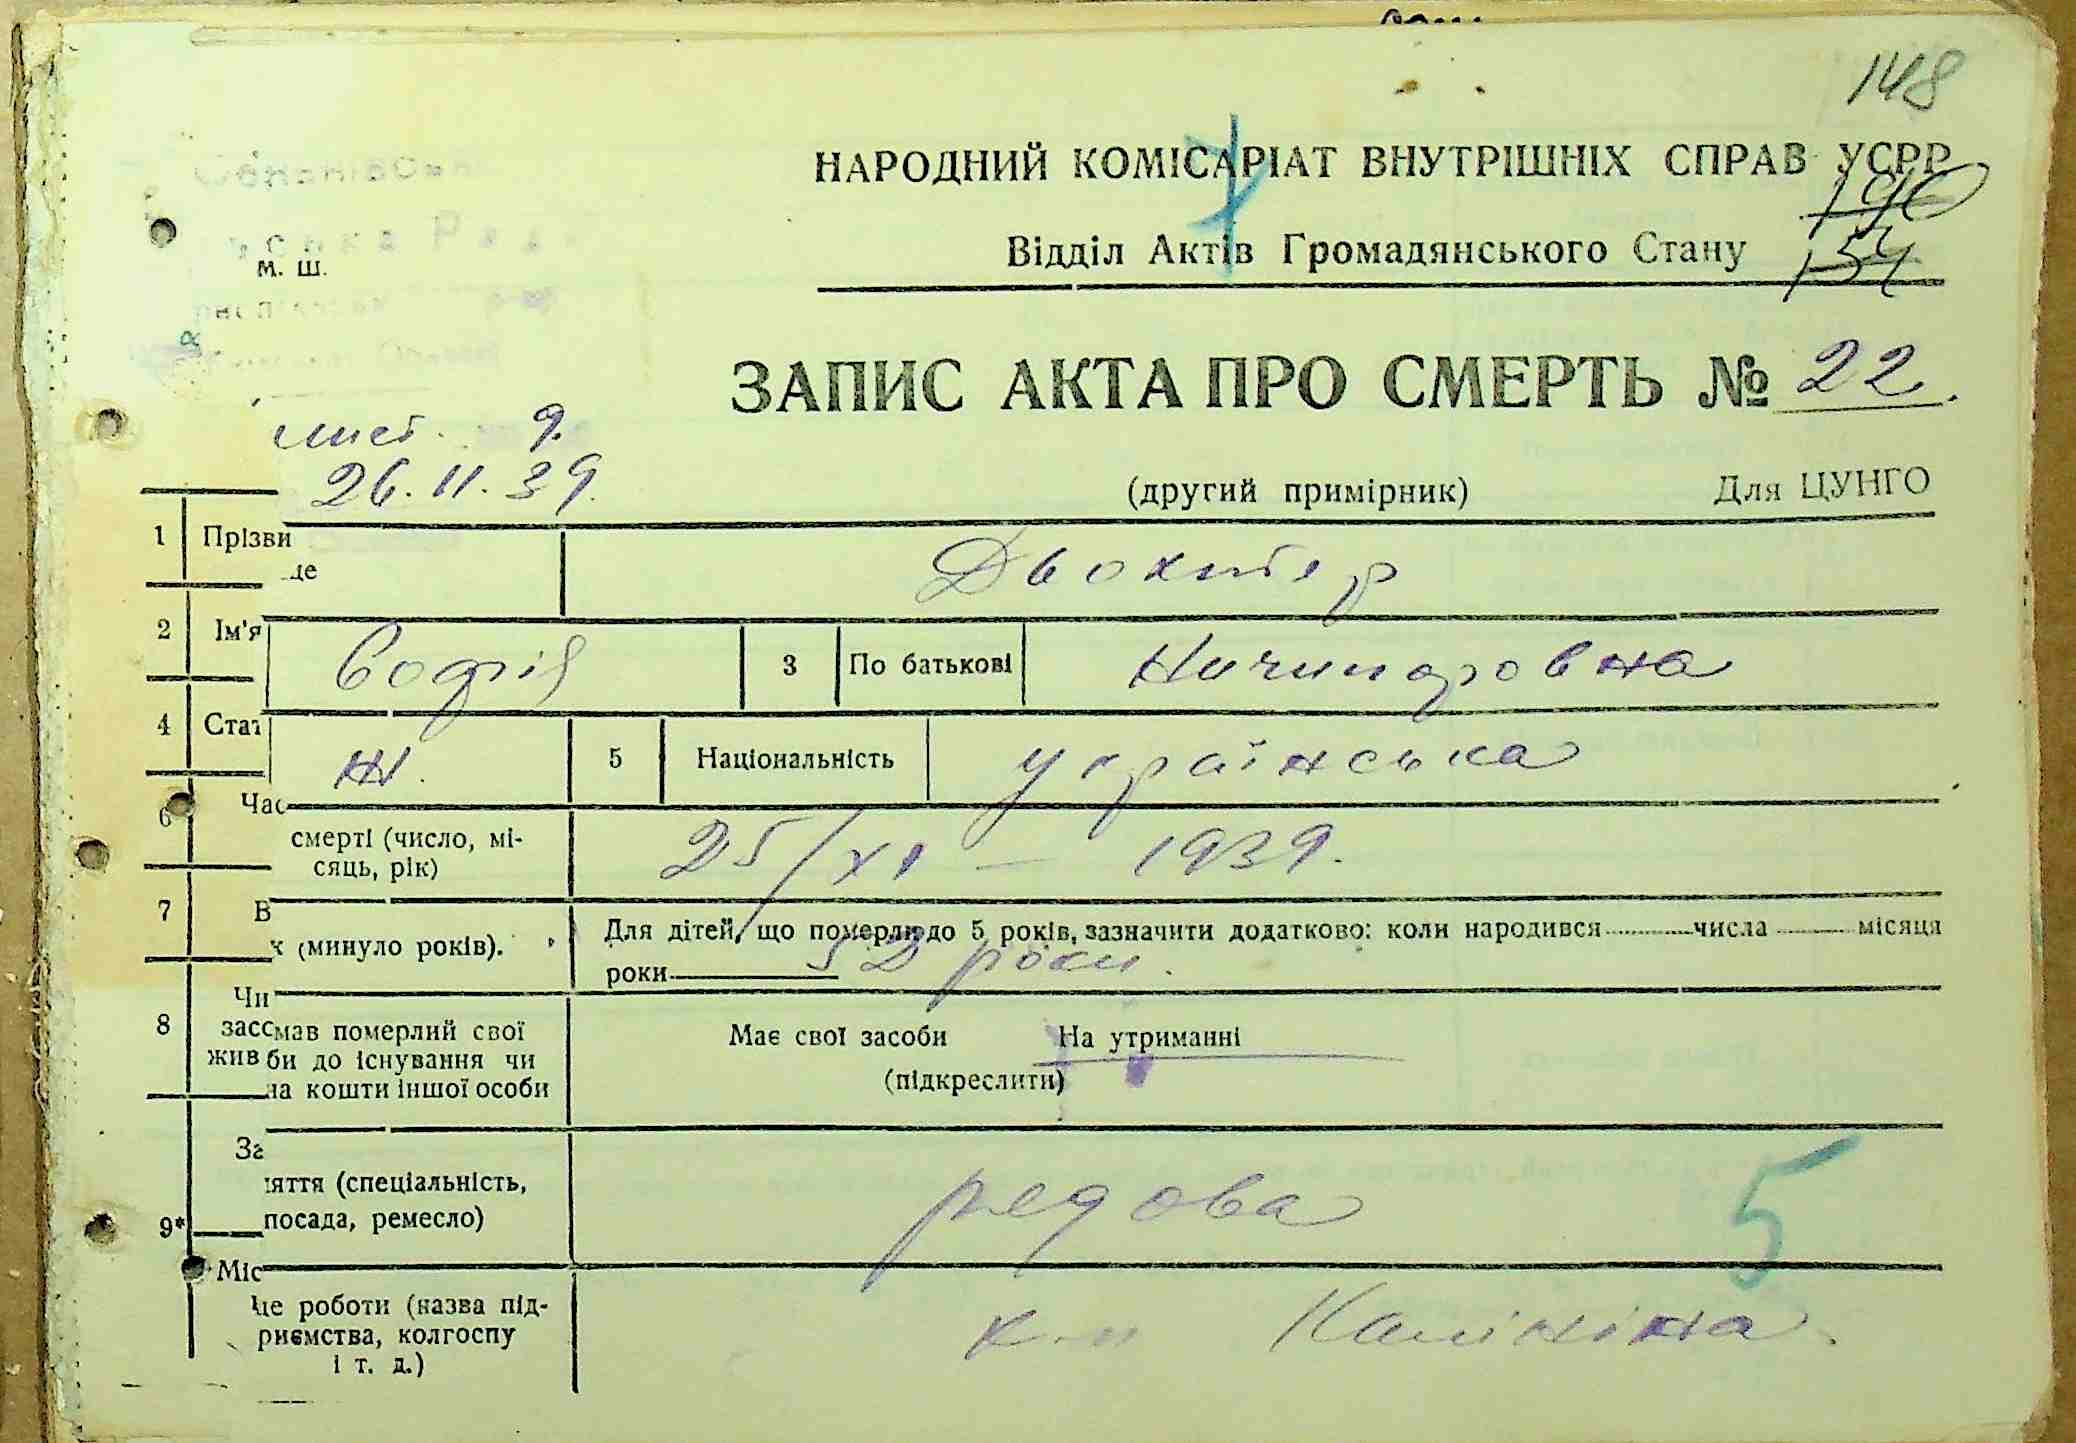 148
НАРОДНИЙ КОМІСАРІАТ ВНУТРІШНІХ СПРАВ УСРР
190
Відділ Актів Громадянського Стану 154
м. ш.
ЗАПИС АКТА ПРО СМЕРТЬ № 22.
лист. 9.
26.11.39.
(другий примірник) Для ЦУНГО
1 Прізви
ще Двохтер
2 Ім'я Софія 3 По батькові Ничипоровна
4 Стат ж. 5 Національність українська
6 Час
смерті (число, мі-
сяць, рік) 25/XI – 1939.
7 В
к (минуло років). Для дітей, що померли до 5 років, зазначити додатково: коли народився числа місяця
роки 52 роки.
8 Чи
засс мав померлий свої Має свої засоби На утриманні
жив би до існування чи (підкреслити)
на кошти іншої особи
За
яття (спеціальність,
9* посада, ремесло) рядова
5
Міс
це роботи (назва під-
приємства, колгоспу
і т. д.) к-п Калініна.